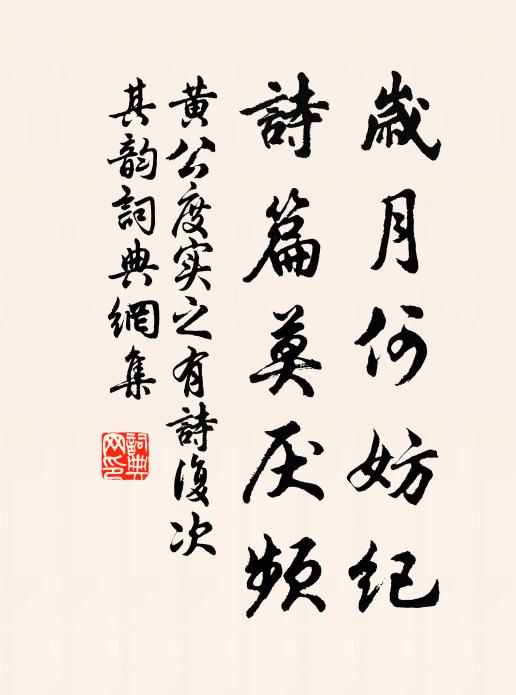 歲月何妨紀
詩篇莫厌頻
黄公度实之有詩復次
其韵詞典網集
詞典
网印